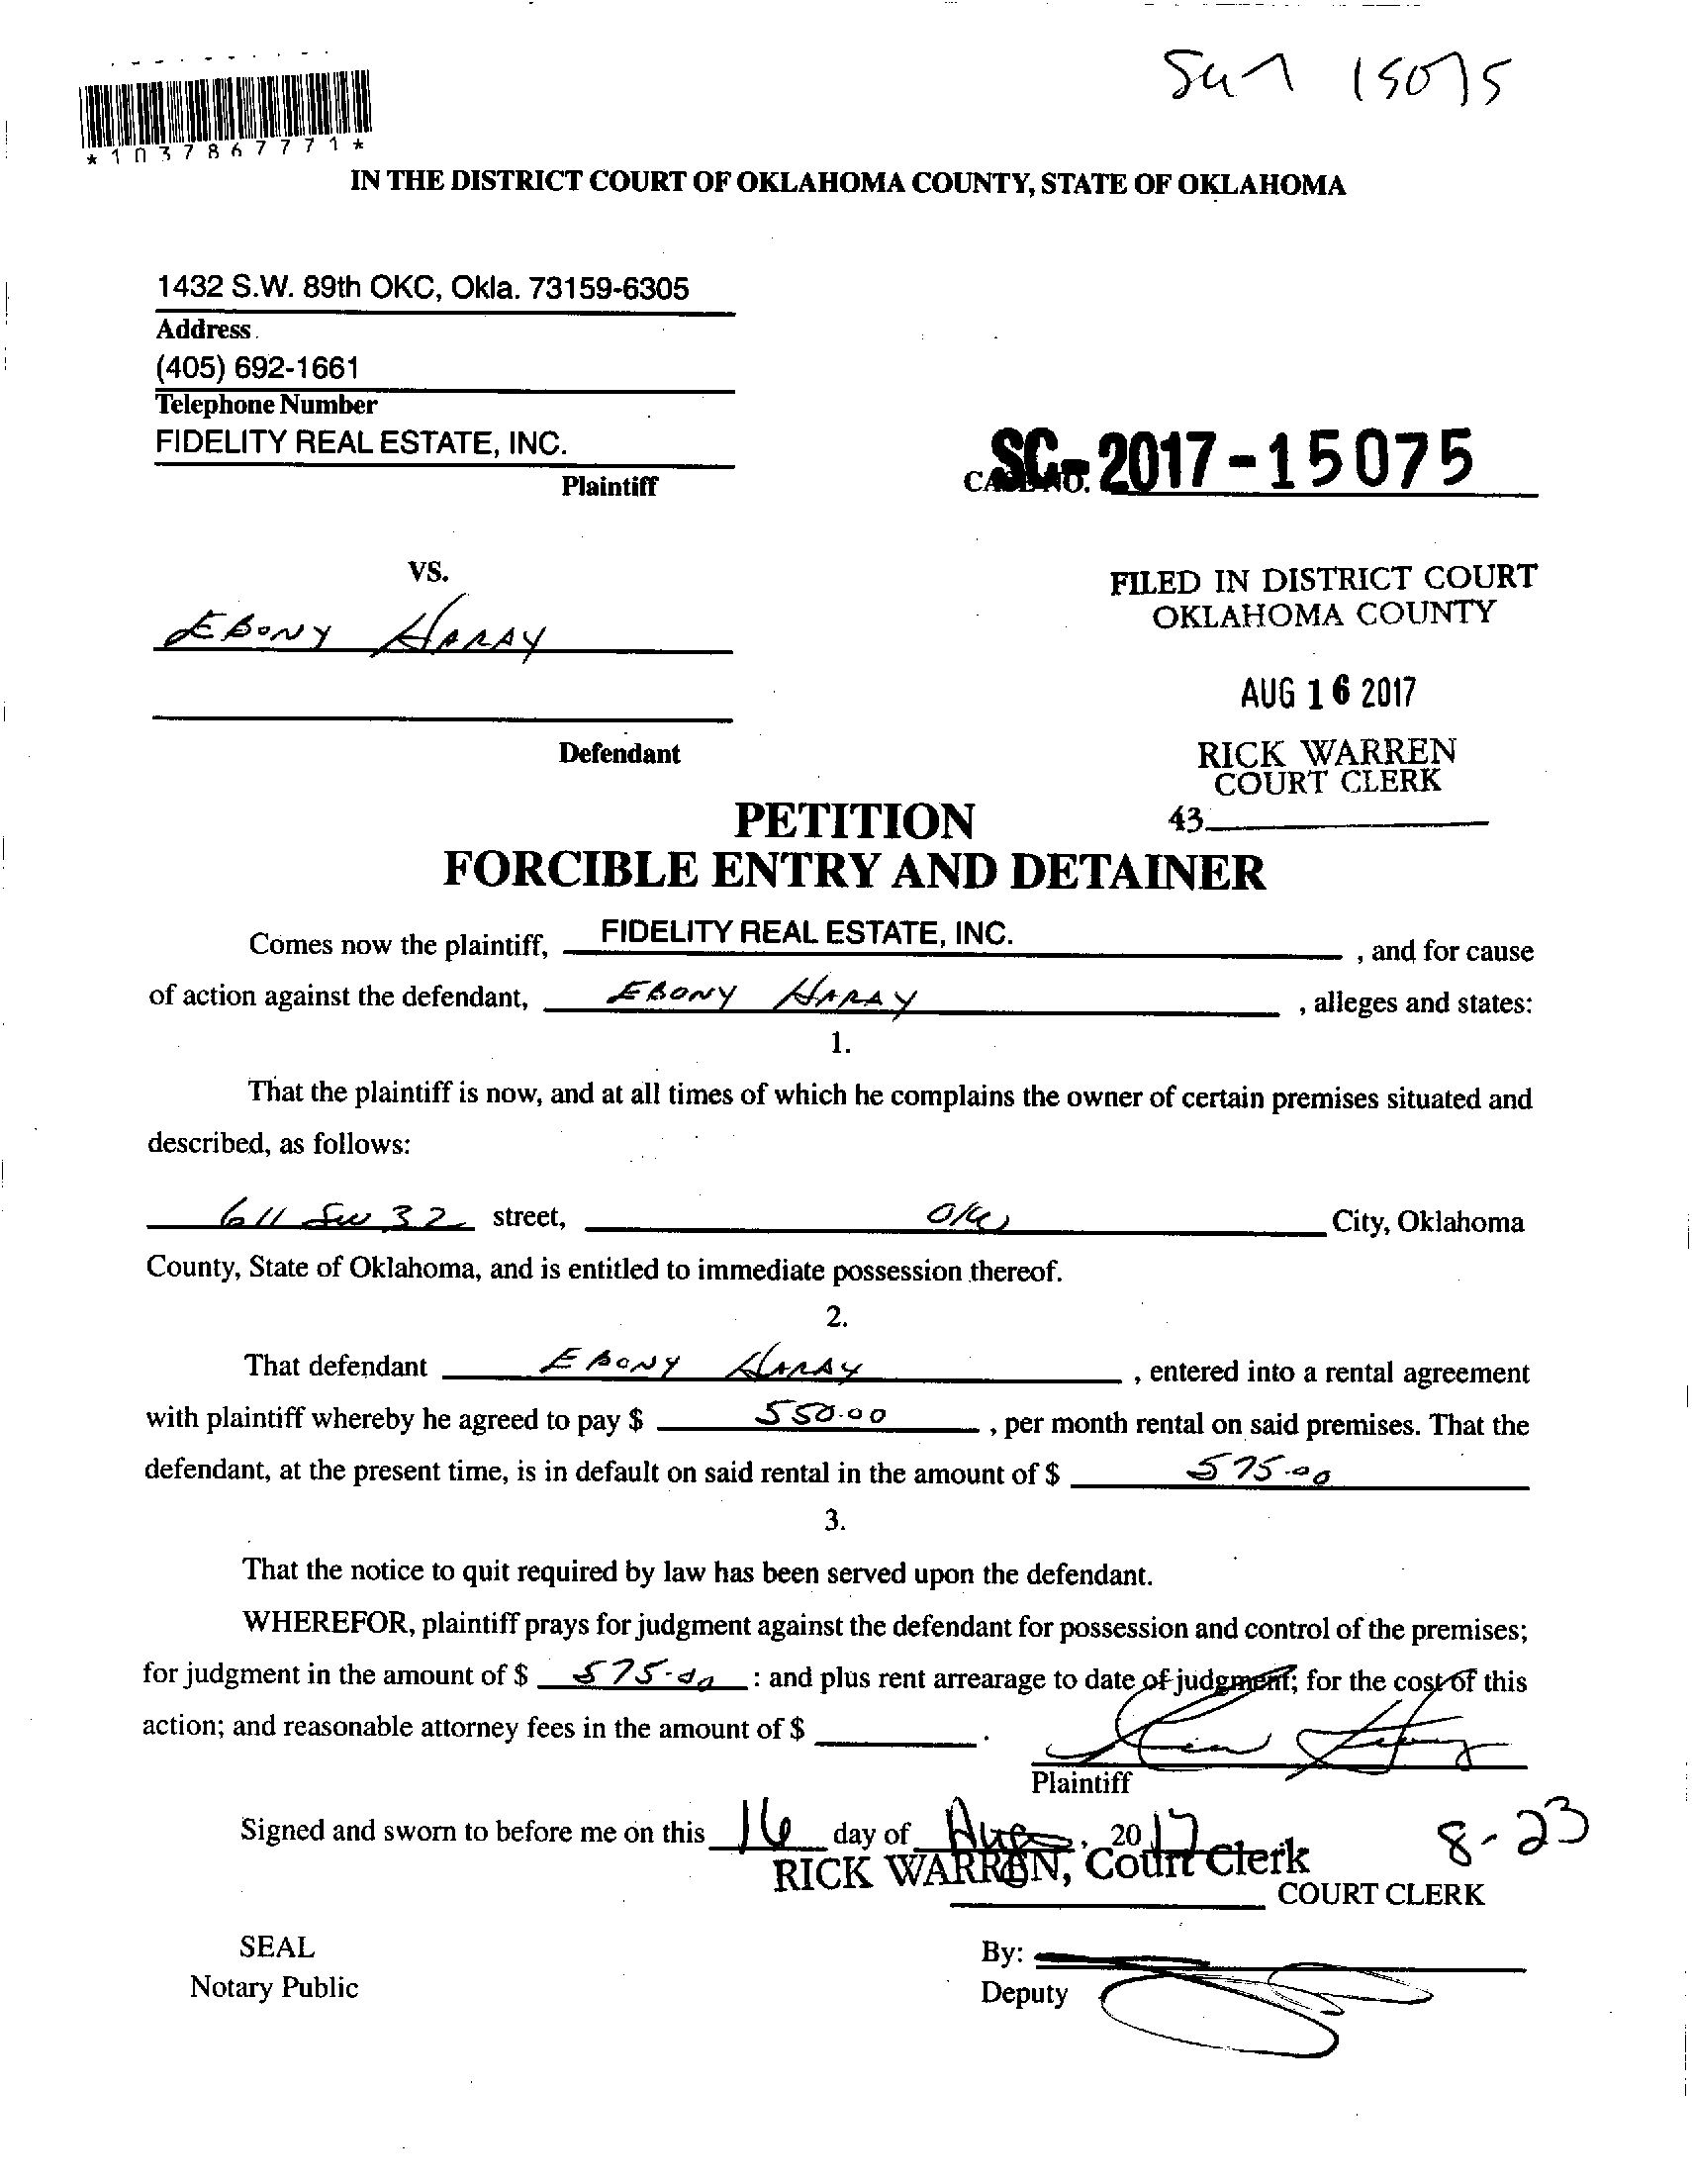 *1037867771*
IN THE DISTRICT COURT OF OKLAHOMA COUNTY, STATE OF OKLAHOMA
1432 S.W. 89th OKC, Okla. 73159-6305
Address
(405) 692-1661
Telephone Number
FIDELITY REAL ESTATE, INC.
Plaintiff
CASE NO. SC-2017-15075
VS.
EBONY HARAY
Defendant
FILED IN DISTRICT COURT
OKLAHOMA COUNTY
AUG 16 2017
RICK WARREN
COURT CLERK
43
PETITION
FORCIBLE ENTRY AND DETAINER
Comes now the plaintiff, FIDELITY REAL ESTATE, INC. , and for cause
of action against the defendant, EBONY HARAY , alleges and states:
1.
That the plaintiff is now, and at all times of which he complains the owner of certain premises situated and
described, as follows:
611 SW 32 street, OKC City, Oklahoma
County, State of Oklahoma, and is entitled to immediate possession thereof.
2.
That defendant EBONY HARAY , entered into a rental agreement
with plaintiff whereby he agreed to pay $ 550.00 , per month rental on said premises. That the
defendant, at the present time, is in default on said rental in the amount of $ 575.00
3.
That the notice to quit required by law has been served upon the defendant.
WHEREFOR, plaintiff prays for judgment against the defendant for possession and control of the premises;
for judgment in the amount of $ 575.00 : and plus rent arrearage to date of judgment; for the cost of this
action; and reasonable attorney fees in the amount of $ .
Plaintiff
Signed and sworn to before me on this 16 day of Aug , 2017
8-23
RICK WARREN, Court Clerk
COURT CLERK
SEAL
Notary Public
By:
Deputy